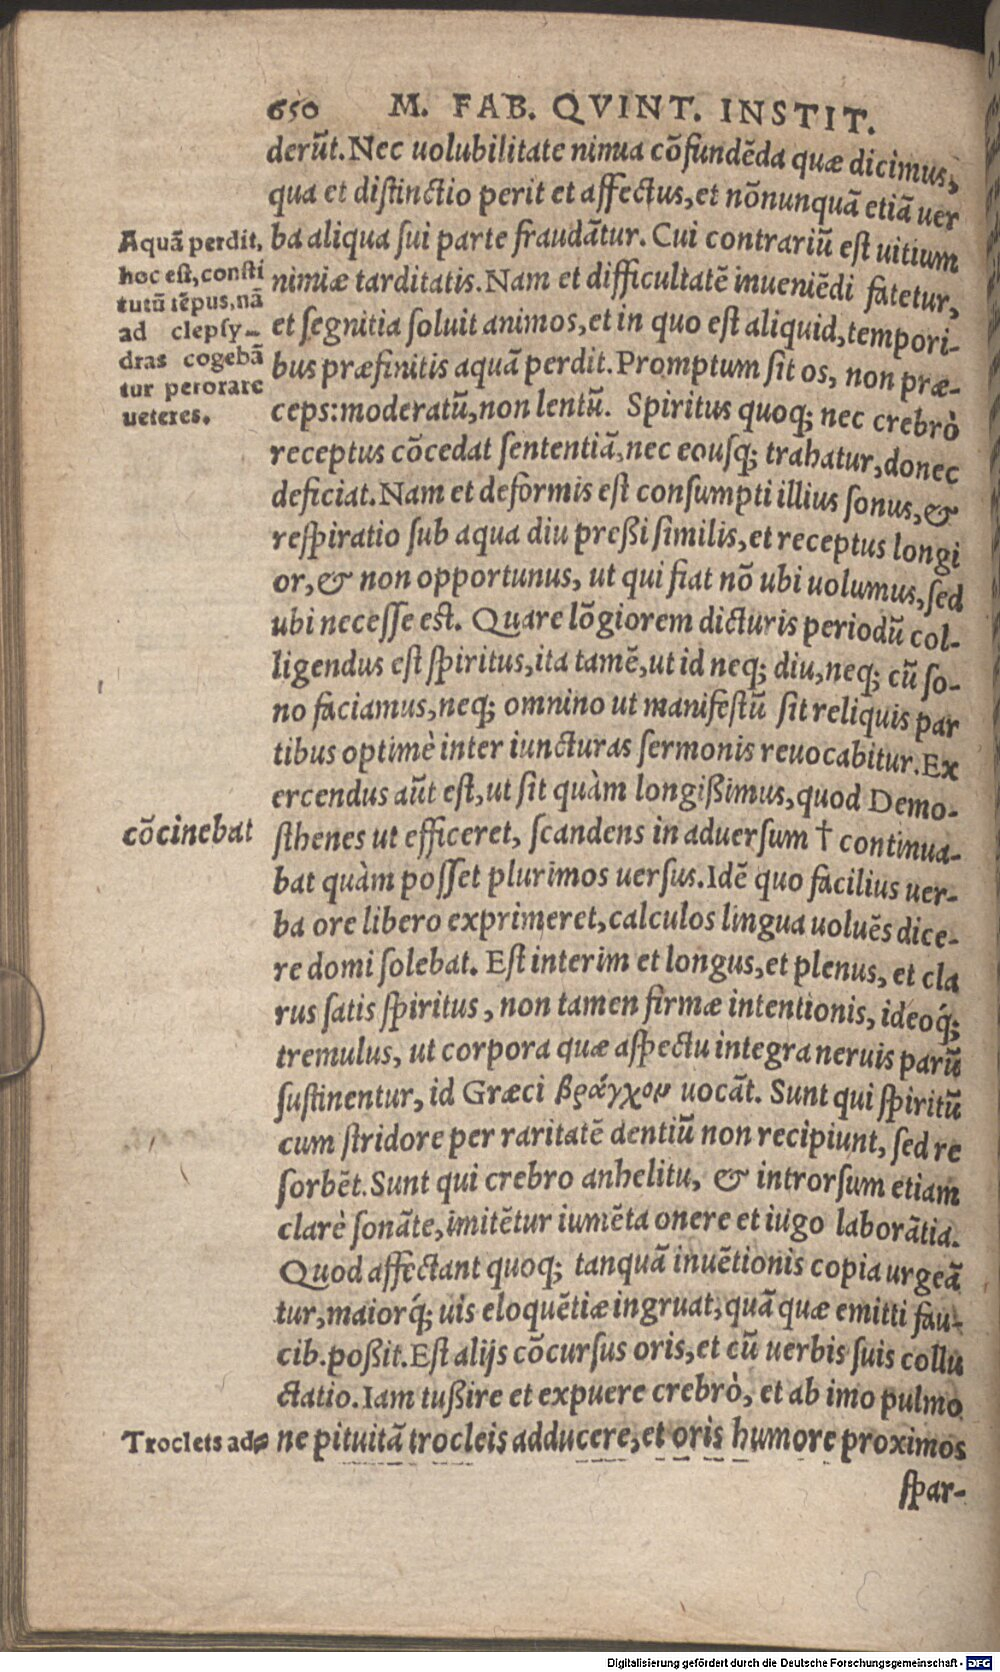 650 M. FAB. QVINT. INSTIT.
derūt. Nec uolubilitate nimia cōfundēda quæ dicimus,
qua et distinctio perit et affectus, et nōnunquā etiā uer
ba aliqua sui parte fraudātur. Cui contrariū est uitium
nimiæ tarditatis. Nam et difficultatē inueniēdi fatetur,
et segnitia soluit animos, et in quo est aliquid, tempori-
bus præfinitis aquā perdit. Promptum sit os, non præ-
ceps: moderatū, non lentū. Spiritus quoq; nec crebrò
receptus cōcedat sententiā, nec eousq; trahatur, donec
deficiat. Nam et deformis est consumpti illius sonus, &
respiratio sub aqua diu preßi similis, et receptus longi
or, & non opportunus, ut qui fiat nō ubi uolumus, sed
ubi necesse est. Quare lōgiorem dicturis periodū col-
ligendus est spiritus, ita tamē, ut id neq; diu, neq; cū so-
no faciamus, neq; omnino ut manifestū sit reliquis par
tibus optimè inter iuncturas sermonis reuocabitur. Ex
ercendus aūt est, ut sit quàm longißimus, quod Demo-
sthenes ut efficeret, scandens in aduersum † continua-
bat quàm posset plurimos uersus. Idē quo facilius uer-
ba ore libero exprimeret, calculos lingua uoluēs dice-
re domi solebat. Est interim et longus, et plenus, et cla
rus satis spiritus, non tamen firmæ intentionis, ideoq́;
tremulus, ut corpora quæ aspectu integra neruis parū
sustinentur, id Græci βράγχον uocāt. Sunt qui spiritū
cum stridore per raritatē dentiū non recipiunt, sed re
sorbēt. Sunt qui crebro anhelitu, & introrsum etiam
clarè sonāte, imitētur iumēta onere et iugo laborātia.
Quod affectant quoq; tanquā inuētionis copia urgeā
tur, maiorq́; uis eloquētiæ ingruat, quā quæ emitti fau-
cib. poßit. Est alijs cōcursus oris, et cū uerbis suis collu
ctatio. Iam tußire et expuere crebrò, et ab imo pulmo
ne pituitā trocleis adducere, et oris humore proximos
spar-
Aquā perdit,
hoc est, consti
tutū tēpus, nā
ad clepsy-
dras cogebā
tur perorare
ueteres.
cōcinebat
Trocleis ad-